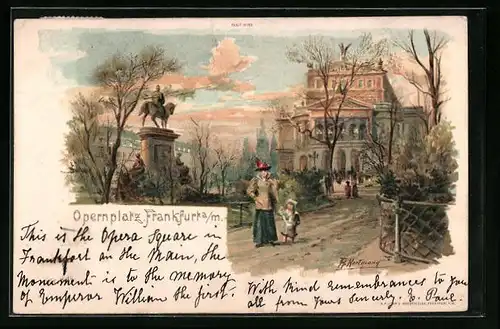 Opernplatz, Frankfurt a/m.
This is the Opera Square in
Frankfort on the Main, the
Monument is to the memory
of Emperor William the first.
With kind remembrances to you
all from yours Sincerly. E. Paul.